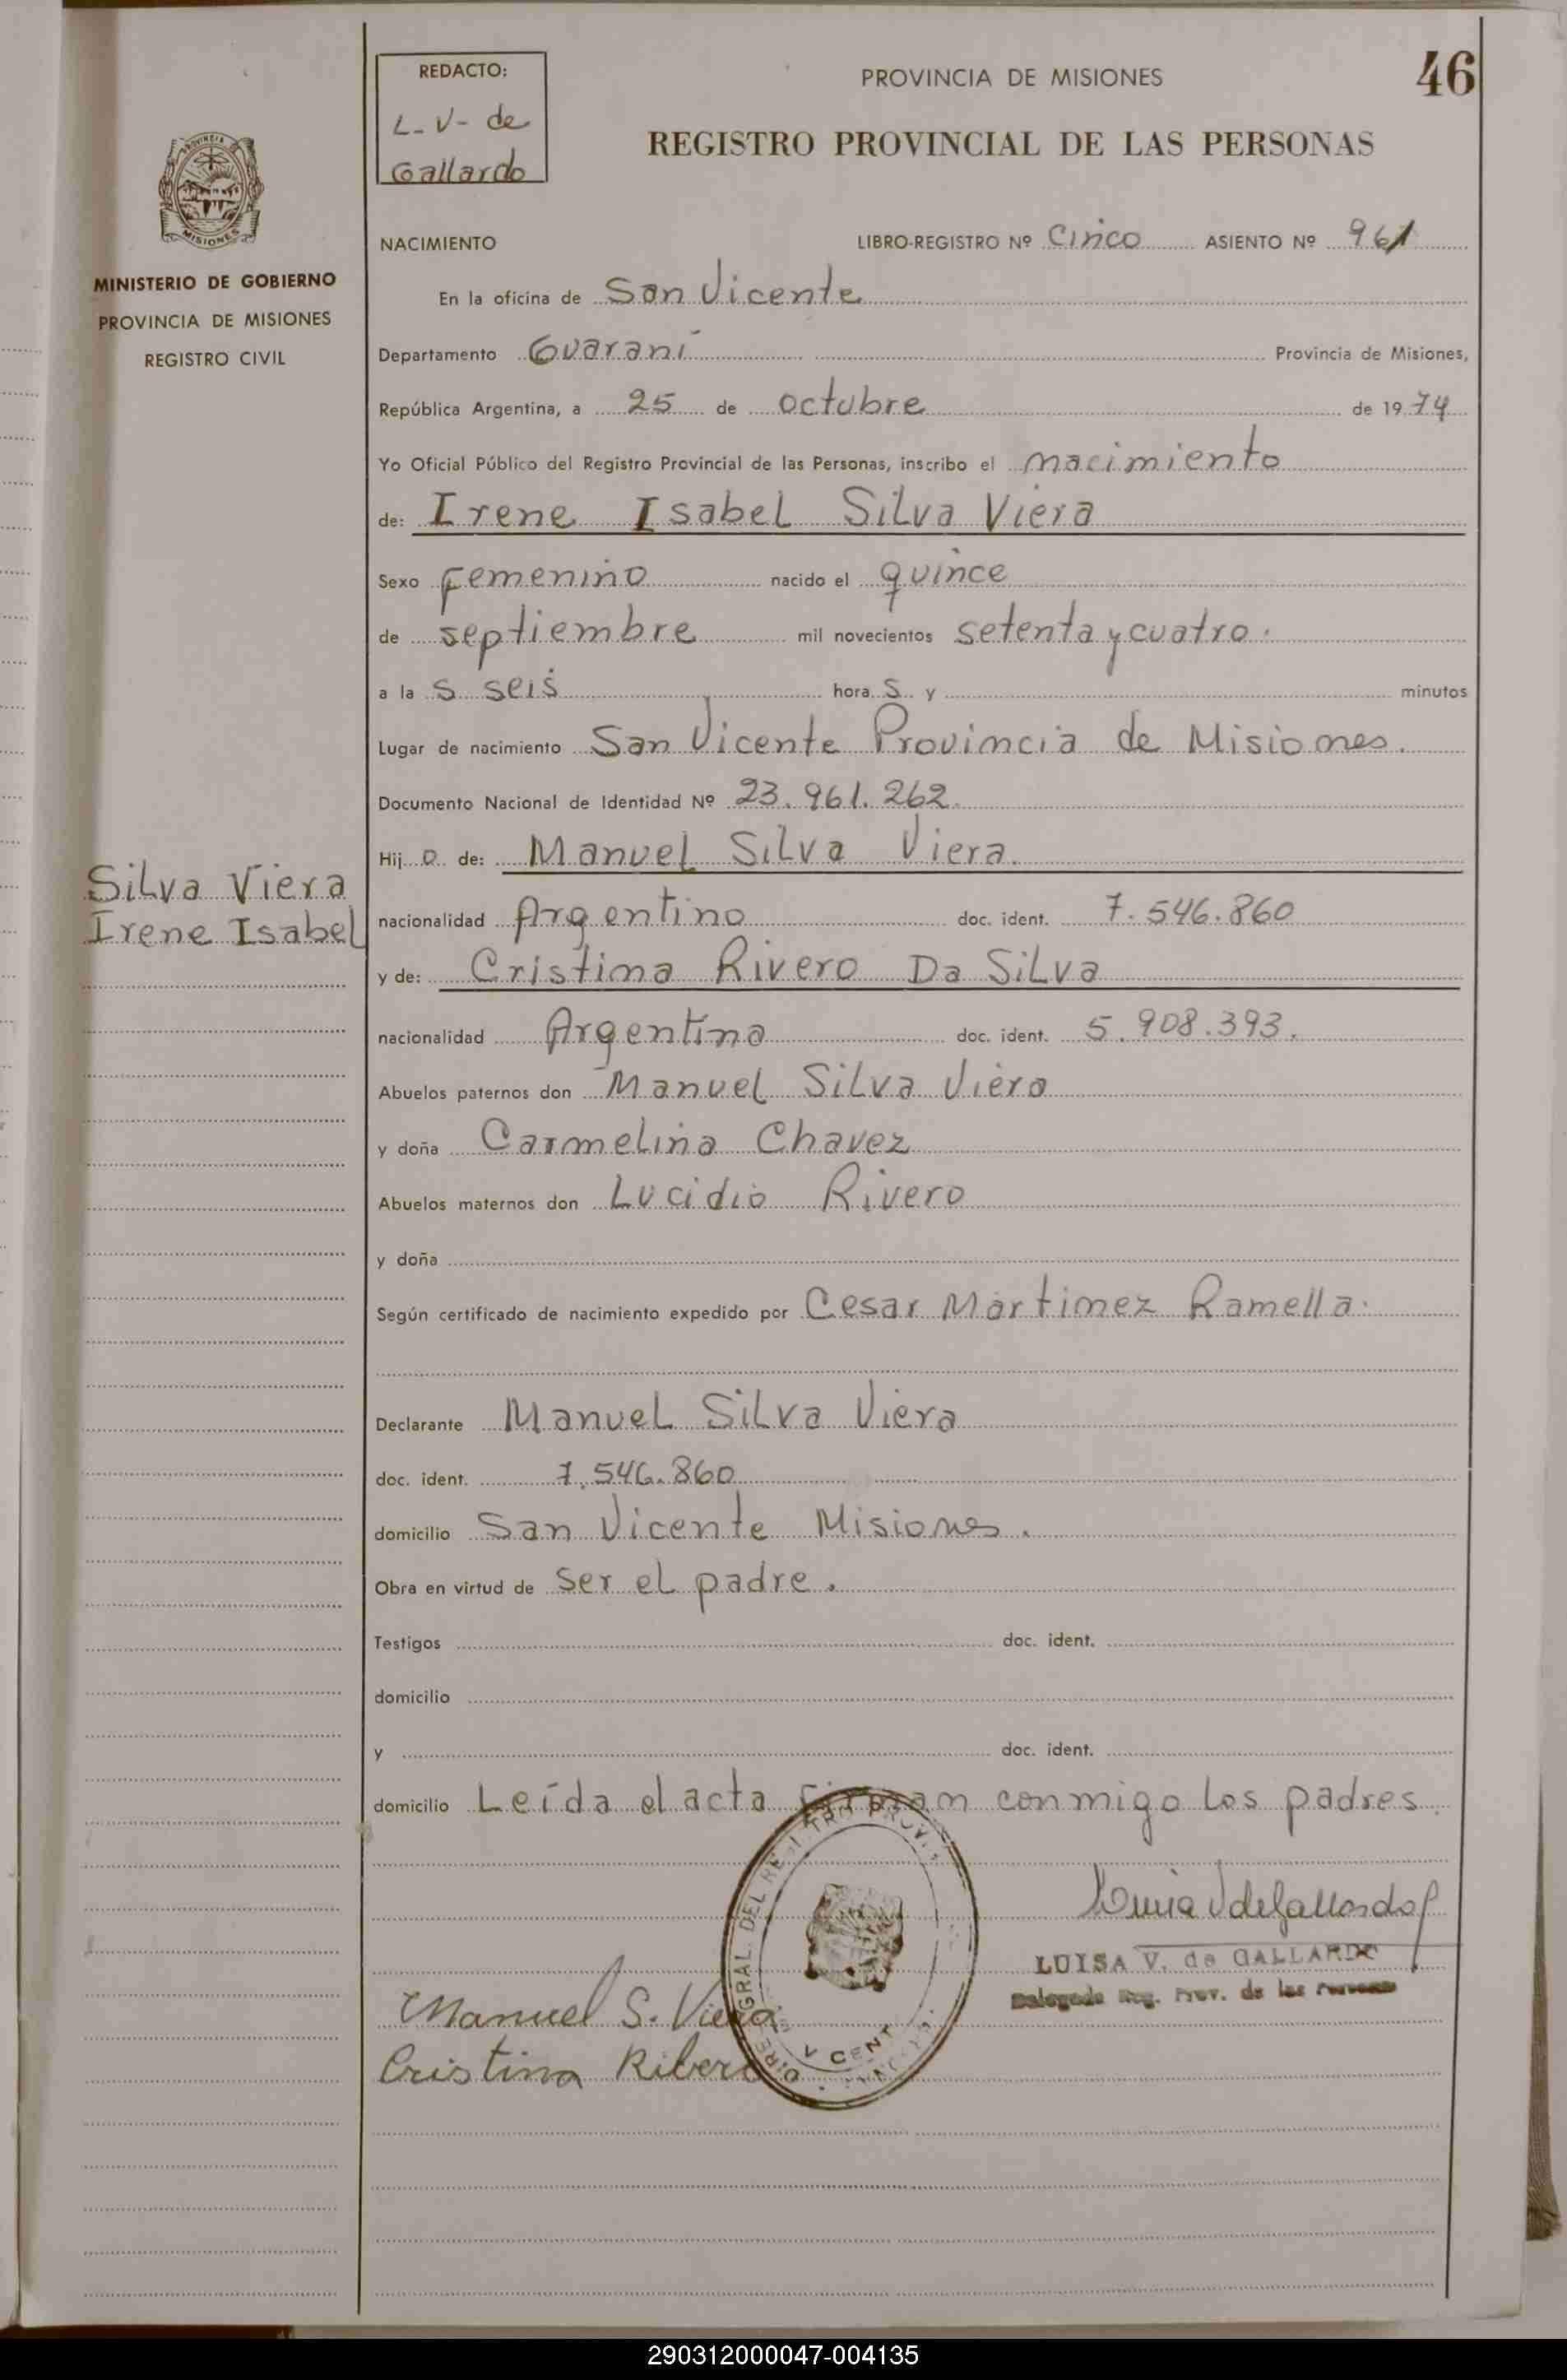 REDACTO:
L- V- de
Gallardo
PROVINCIA DE MISIONES
46
REGISTRO PROVINCIAL DE LAS PERSONAS
MISIONES
MINISTERIO DE GOBIERNO
PROVINCIA DE MISIONES
REGISTRO CIVIL
NACIMIENTO LIBRO-REGISTRO Nº Cinco ASIENTO Nº 961
En la oficina de San Vicente
Departamento Guaraní Provincia de Misiones,
República Argentina, a 25 de octubre de 1974
Yo Oficial Público del Registro Provincial de las Personas, inscribo el nacimiento
de: Irene Isabel Silva Viera
Sexo Femenino nacido el quince
de septiembre mil novecientos setenta y cuatro.
a la s seis hora s y minutos
Lugar de nacimiento San Vicente Provincia de Misiones.
Documento Nacional de Identidad Nº 23.961.262
Hij o de: Manuel Silva Viera
Silva Viera
Irene Isabel
nacionalidad Argentino doc. ident. 7.546.860
y de: Cristina Rivero Da Silva
nacionalidad Argentina doc. ident. 5.908.393.
Abuelos paternos don Manuel Silva Viera
y doña Carmelina Chavez
Abuelos maternos don Lucidio Rivero
y doña
Según certificado de nacimiento expedido por Cesar Martinez Ramella.
Declarante Manuel Silva Viera
doc. ident. 7.546.860
domicilio San Vicente Misiones.
Obra en virtud de ser el padre.
Testigos doc. ident.
domicilio
y doc. ident.
domicilio Leída el acta firman conmigo los padres.
LUISA V. de GALLARDO
Delegada Reg. Prov. de las Personas
Manuel S. Viera
Cristina Ribero
290312000047-004135